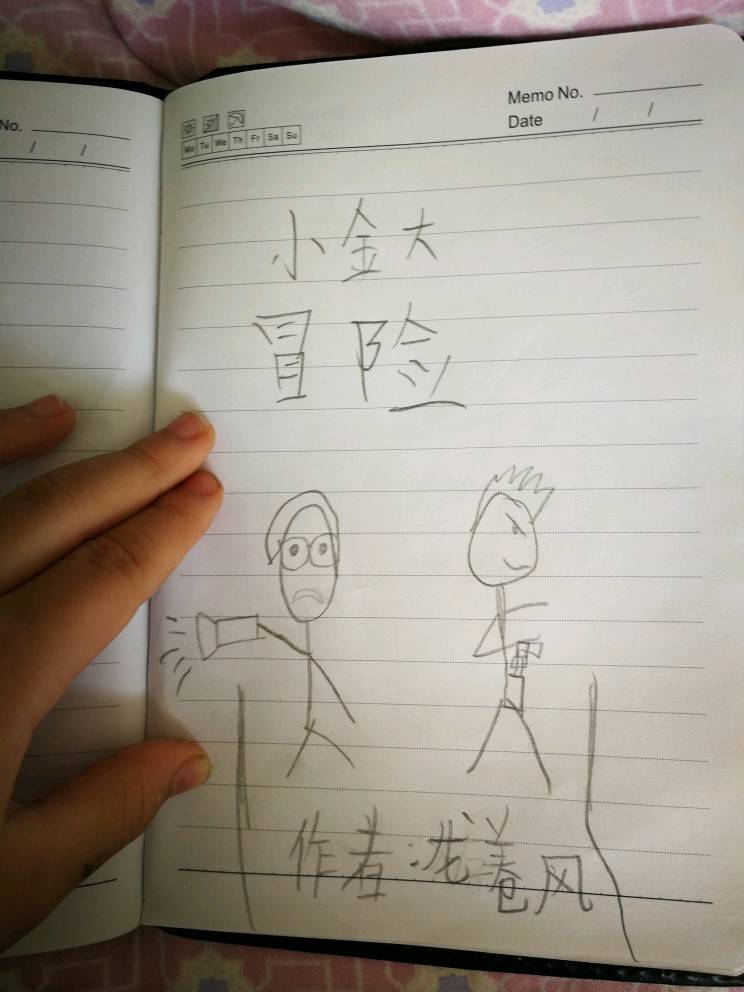 No.
/ /
Memo No.
Date / /
Mo Tu We Th Fr Sa Su
小金大
冒险
作者:龙卷风